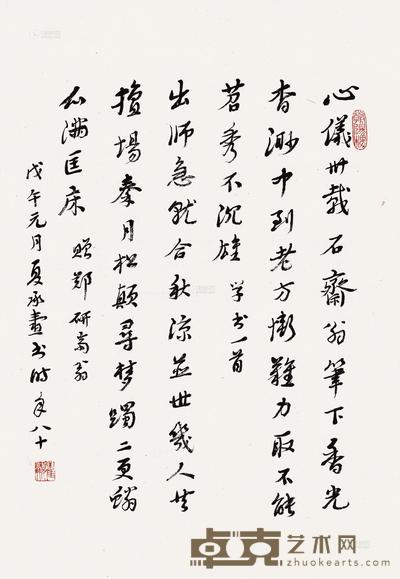 心儀卅載石齋翁筆下香光
杳渺中到老方慚難力取不能
苕秀不沉雄 學書一首
出師急就合秋涼並世幾人共
擅場秦月松顛尋夢躅二更蟾
滿匡床 贈鄭研齋翁
戊午元月夏承燾書時年八十
卓克艺术网
zhuokearts.com